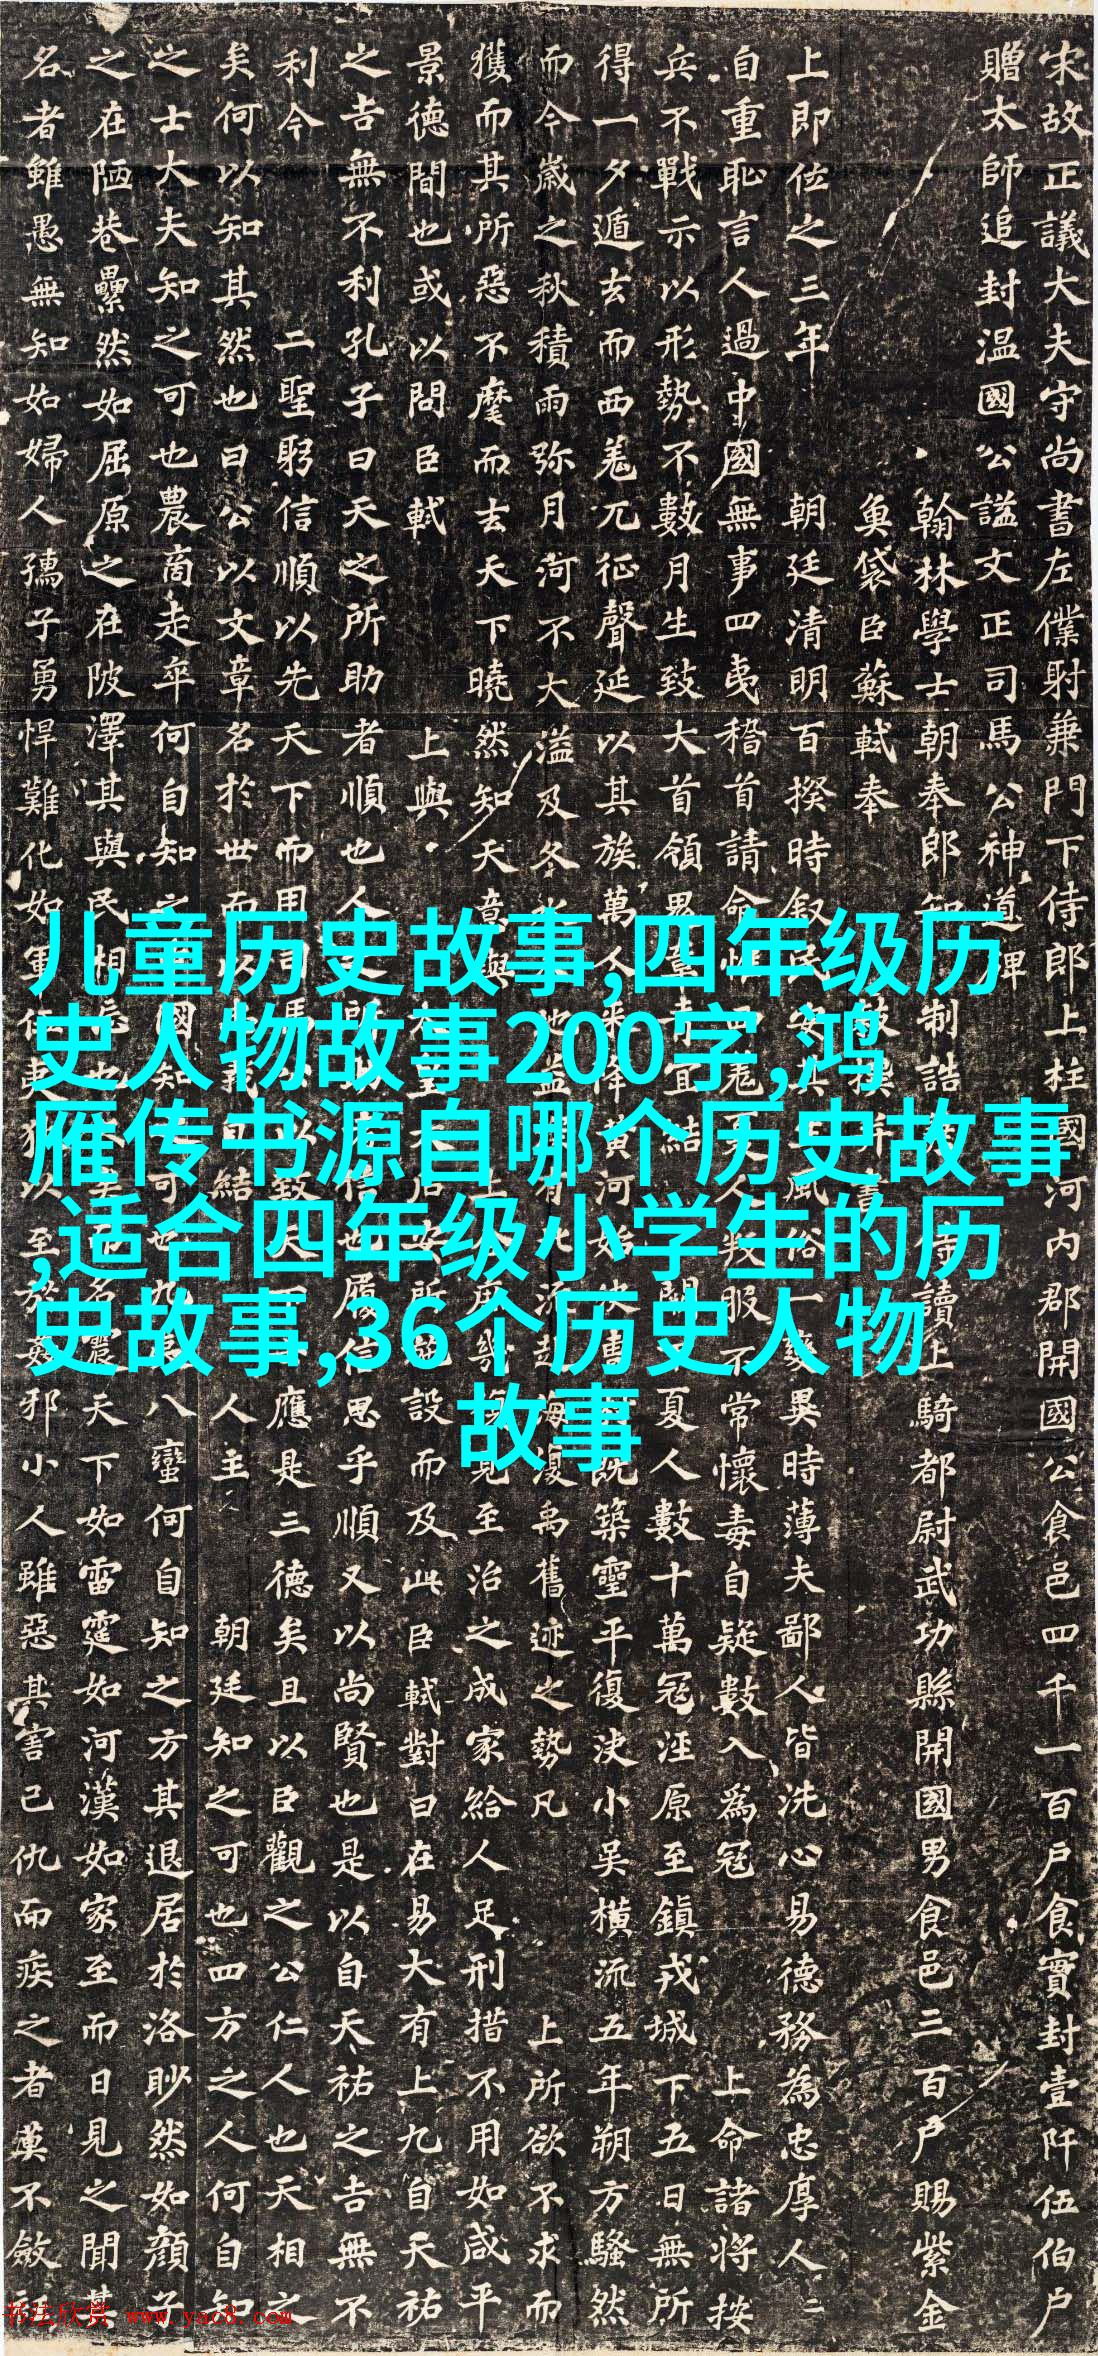 宋故正議大夫守尚書左僕射兼門下侍郎上柱國河內郡開國公食邑四千一百戶食實封壹阡伍伯戶
贈太師追封温國公謚文正司馬公神道碑
翰林學士朝奉郎知制誥侍讀上騎都尉武功縣開國男食邑三百戶賜紫金
魚袋臣蘇軾奉敕撰并書
上即位之三年朝廷清明百揆時敘民安其生風俗一變異時薄夫鄙人皆洗心易德務為忠厚人人
自重耻言人過中國無事四夷稽首請命惟西羗夏人叛服不常懷毒自疑數入為冦上命諸將按
兵不戰示以形勢不數月生致大首領鬼章青宜結闕下夏人數十萬冦涇原至鎮戎城下五日無所
得一夕遁去而西羗兀征聲延以其族萬人來降黃河始决曹村既築靈平復決小吳橫流五年朔方騷然
而今歲之秋積雨弥月河不大溢及冬水入地益深有北流赴海復禹舊迹之勢凡上所欲不求而
獲而其所惡不麾而去天下曉然知天意與上合庶幾復見至治之成家給人足刑措不用如咸平
景德間也或以問臣軾上與太皇太后安所施設而及此臣軾對曰在易大有上九自天祐
之吉無不利孔子曰天之所助者順也人之所助者信也履信思乎順又以尚賢也是以自天祐之吉無不
利今二聖躬信順以先天下而用司馬公以致天下士應是三德矣且以臣觀之公仁人也天相之
矣何以知其然也曰公以文章名於世而以忠義自結人主朝廷知之可也四方之人何自知
之士大夫知之可也農商走卒何自知之中國知之可也九夷八蠻何自知之方其退居於洛眇然如顏子
之在陋巷纍然如屈原之在陂澤其與民相忘也久矣而名震天下如雷霆如河漢如家至而日見之聞其
名者雖愚無知如婦人孺子勇悍難化如軍伍夷狄以至於姦邪小人雖惡其害己仇而疾之者莫不斂衽
儿童历史故事,四年级历
史人物故事200字,鸿
雁传书源自哪个历史故事
,适合四年级小学生的历
史故事,36个历史人物
故事
书法欣赏 www.yac8.com